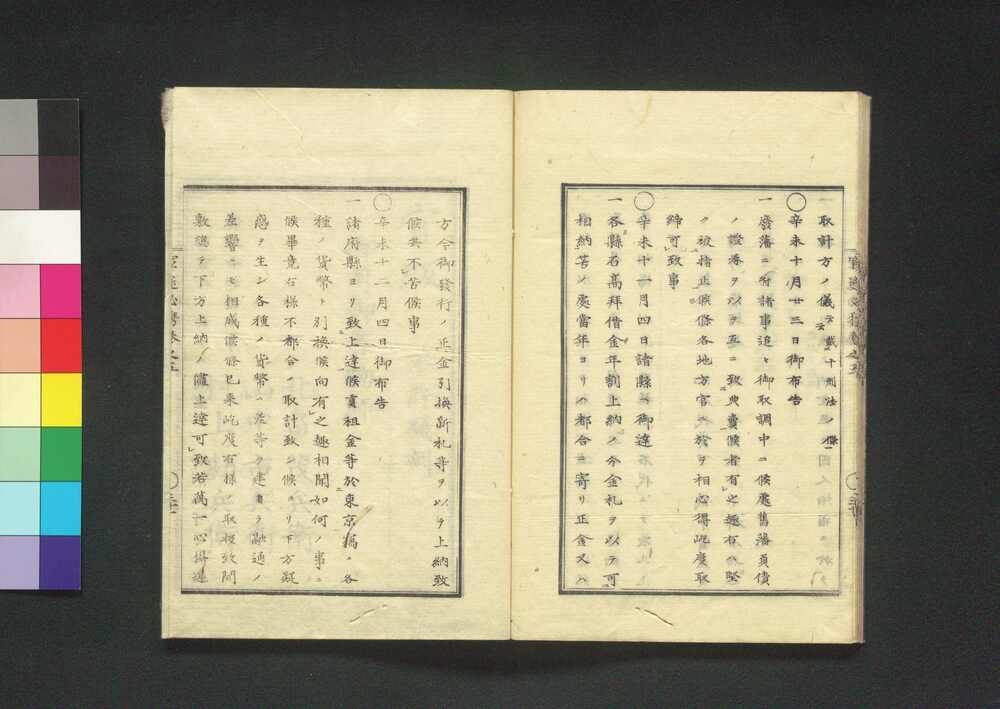 一取計方ノ儀ニ付テ云 載于刑法ノ條
◯辛未十月廿三日御布告
一廢藩ニ付諸事追々御取調中ニ候處舊藩負債
ノ證券ヲ以テ互ニ致典賣候者有之趣右ハ堅
ク被指止候條各地方官ニ於テ相心得屹度取
締可致事
◯辛未十一月四日諸縣ヘ御達
一各縣石高拜借金年割上納ノ分金札ヲ以テ可
相納筈ノ處當年ヨリノ都合ニ寄リ正金又ハ
方今御發行ノ正金引換新札等ヲ以テ上納致
候共不苦候事
辛未十二月四日御布告
一諸府縣ヨリ致上達候貢租金等於東京爲各
種ノ貨幣ト別換候向有之趣相聞如何ノ事ニ
候畢竟右樣不都合ノ取計致シ候ヨリ下方疑
惑ヲ生シ各種ノ貨幣ニ差等ヲ建自ラ融通ノ
差響ニモ相成候條已來屹度右樣ノ取扱致間
敷總テ下方上納ノ儘上達可致若萬一心得違